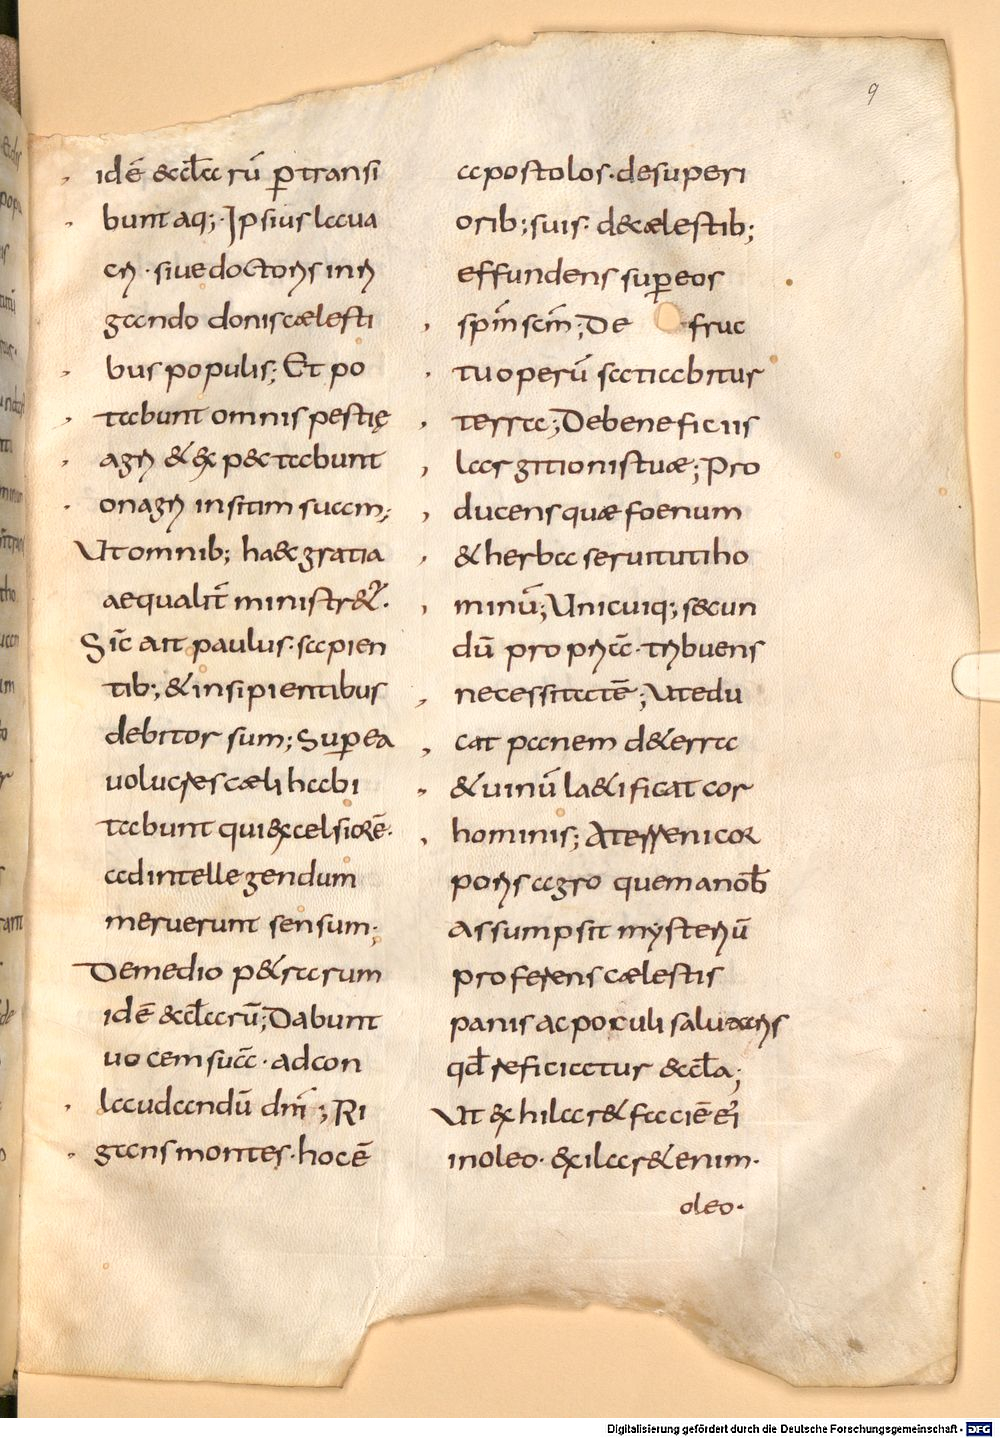 9
idē & eccl̄arū ꝑtransi
bunt aq;· Ipsius lacua
cri· siue doctoris inri
gando donis cælesti
bus populis; Et po
tabunt omnis pestię
agri & expectabunt
onagri in sitim suam;
Ut omnib; haec gratia
aequalit̄ ministretur.
Sic̄ ait paulus· sapien
tib; & insipientibus
debitor sum; Suꝑ ea
uolucres cæli habi
tabunt qui excelsiorē·
ad intellegendum
meruerunt sensum;
De medio petrarum
idē eccl̄arū; Dabunt
uocem suā· ad con
laudandū dn̄i; Ri
gans montes· hoc ē
apostolos· de superi
orib; suis· de cælestib;
effundens suꝑ eos
sp̄m sc̄m; De fruc
tu operū satiabitur
terra; De beneficiis
largitionis tuæ; Pro
ducens quæ foenum
& herba seruituti ho
minū; Unicuiq; secun
dū propria· tribuens
necessitatē; Ut edu
cat panem de terra
& uinū laetificat cor
hominis; A terreni cor
poris agro quem a nob̄
assumpsit mysteriū
proferens cælestis
panis ac poculi salutaris
qd̄ reficiatur eccl̄a;
Ut exhilaret faciē ei'
in oleo· exilaret enim·
oleo·
Digitalisierung gefördert durch die Deutsche Forschungsgemeinschaft - DFG